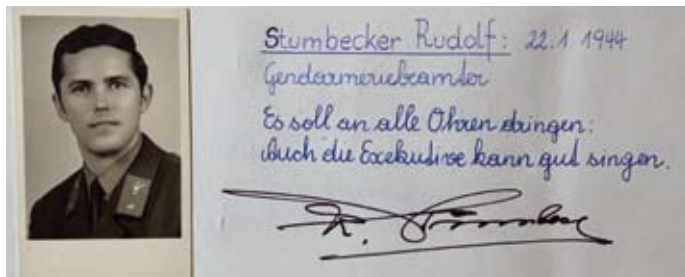 Stumbecker Rudolf: 22.1.1944
Gendarmeriebeamter
Es soll an alle Ohren dringen:
Auch die Exekutive kann gut singen.
R. Stumbecker